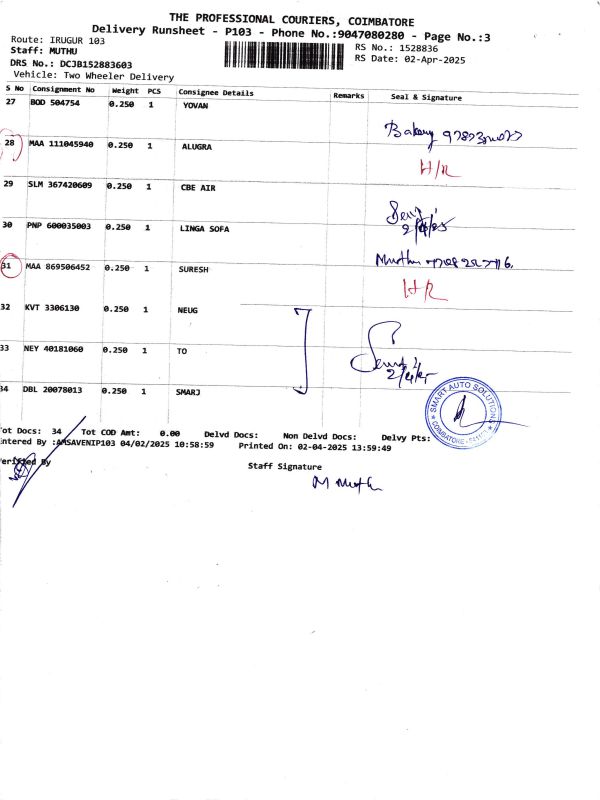 THE PROFESSIONAL COURIERS, COIMBATORE
Delivery Runsheet - P103 - Phone No.:9047080280 - Page No.:3
Route: IRUGUR 103
RS No.: 1528836
Staff: MUTHU
RS Date: 02-Apr-2025
DRS No.: DCJB152883603
Vehicle: Two Wheeler Delivery
S No Consignment No Weight PCS Consignee Details Remarks Seal & Signature
27 BOD 504754 0.250 1 YOVAN
Bakery
28 MAA 111045940 0.250 1 ALUGRA
H/R
29 SLM 367420609 0.250 1 CBE AIR
2/4/25
30 PNP 600035003 0.250 1 LINGA SOFA
31 MAA 869506452 0.250 1 SURESH
H/R
32 KVT 3306130 0.250 1 NEUG
33 NEY 40181060 0.250 1 TO
2/4/25
34 DBL 20078013 0.250 1 SMARJ
SMART AUTO SOLUTIONS
COIMBATORE
ot Docs: 34 Tot COD Amt: 0.00 Delvd Docs: Non Delvd Docs: Delvy Pts:
ntered By :AMSAVENIP103 04/02/2025 10:58:59 Printed On: 02-04-2025 13:59:49
erified By
Staff Signature
M Muthu